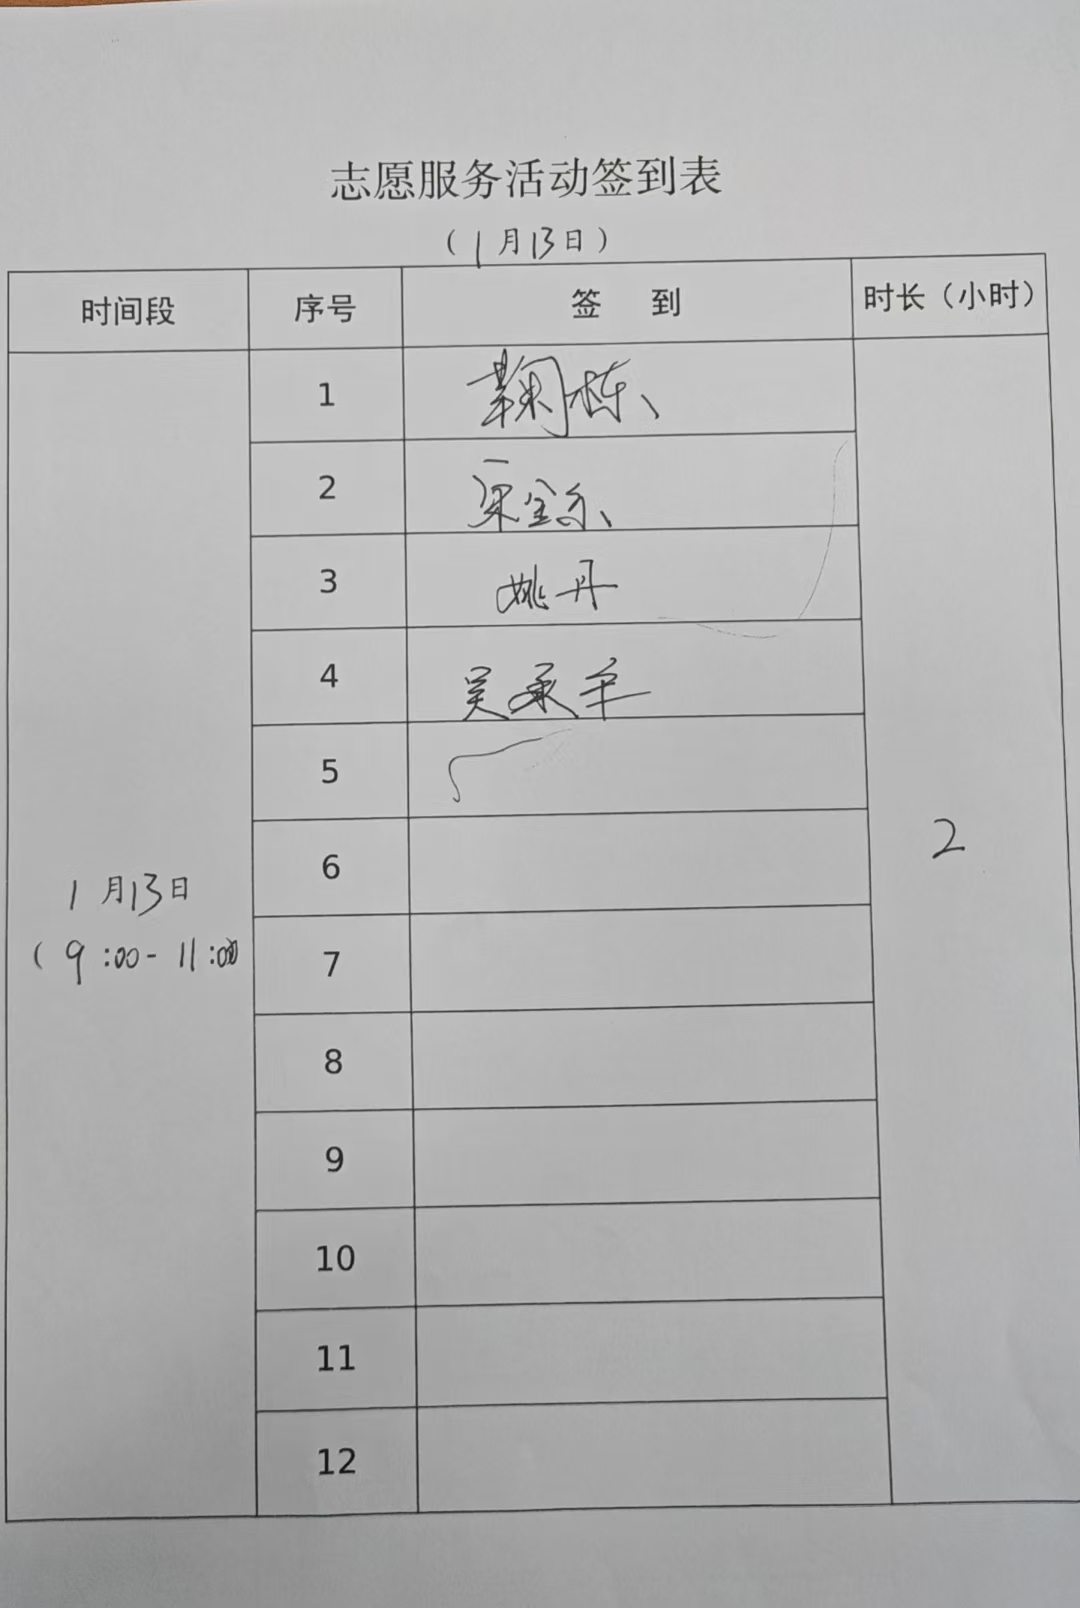 志愿服务活动签到表
（1月13日）
时间段 序号 签 到 时长（小时）
1 鞠栋
2
3 姚丹
4 吴承
5
6
7
8
9
10
11
12
1月13日
（9:00-11:00
2